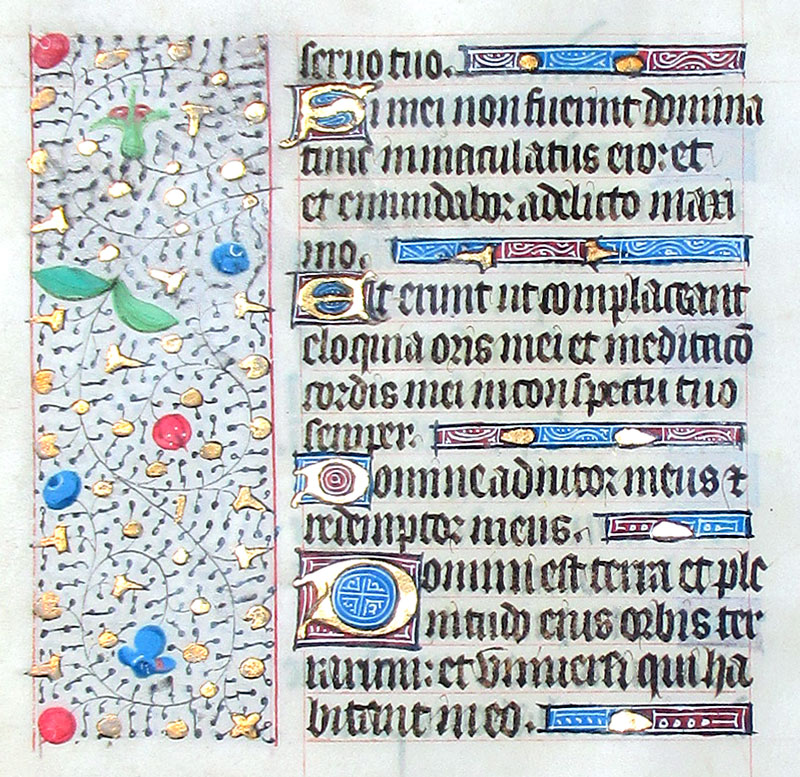 seruo tuo.
Si mei non fuerint domina
tunc inmaculatus ero: et
et emundabor a delicto maxi
mo.
Et erunt ut complaceant
eloquia oris mei et meditacō
cordis mei in conspectu tuo
semper.
Domine adiutor meus et
redemptor meus.
Domini est terra et ple
nitudo eius orbis ter
rarum: et vniuersi qui ha
bitant in eo.